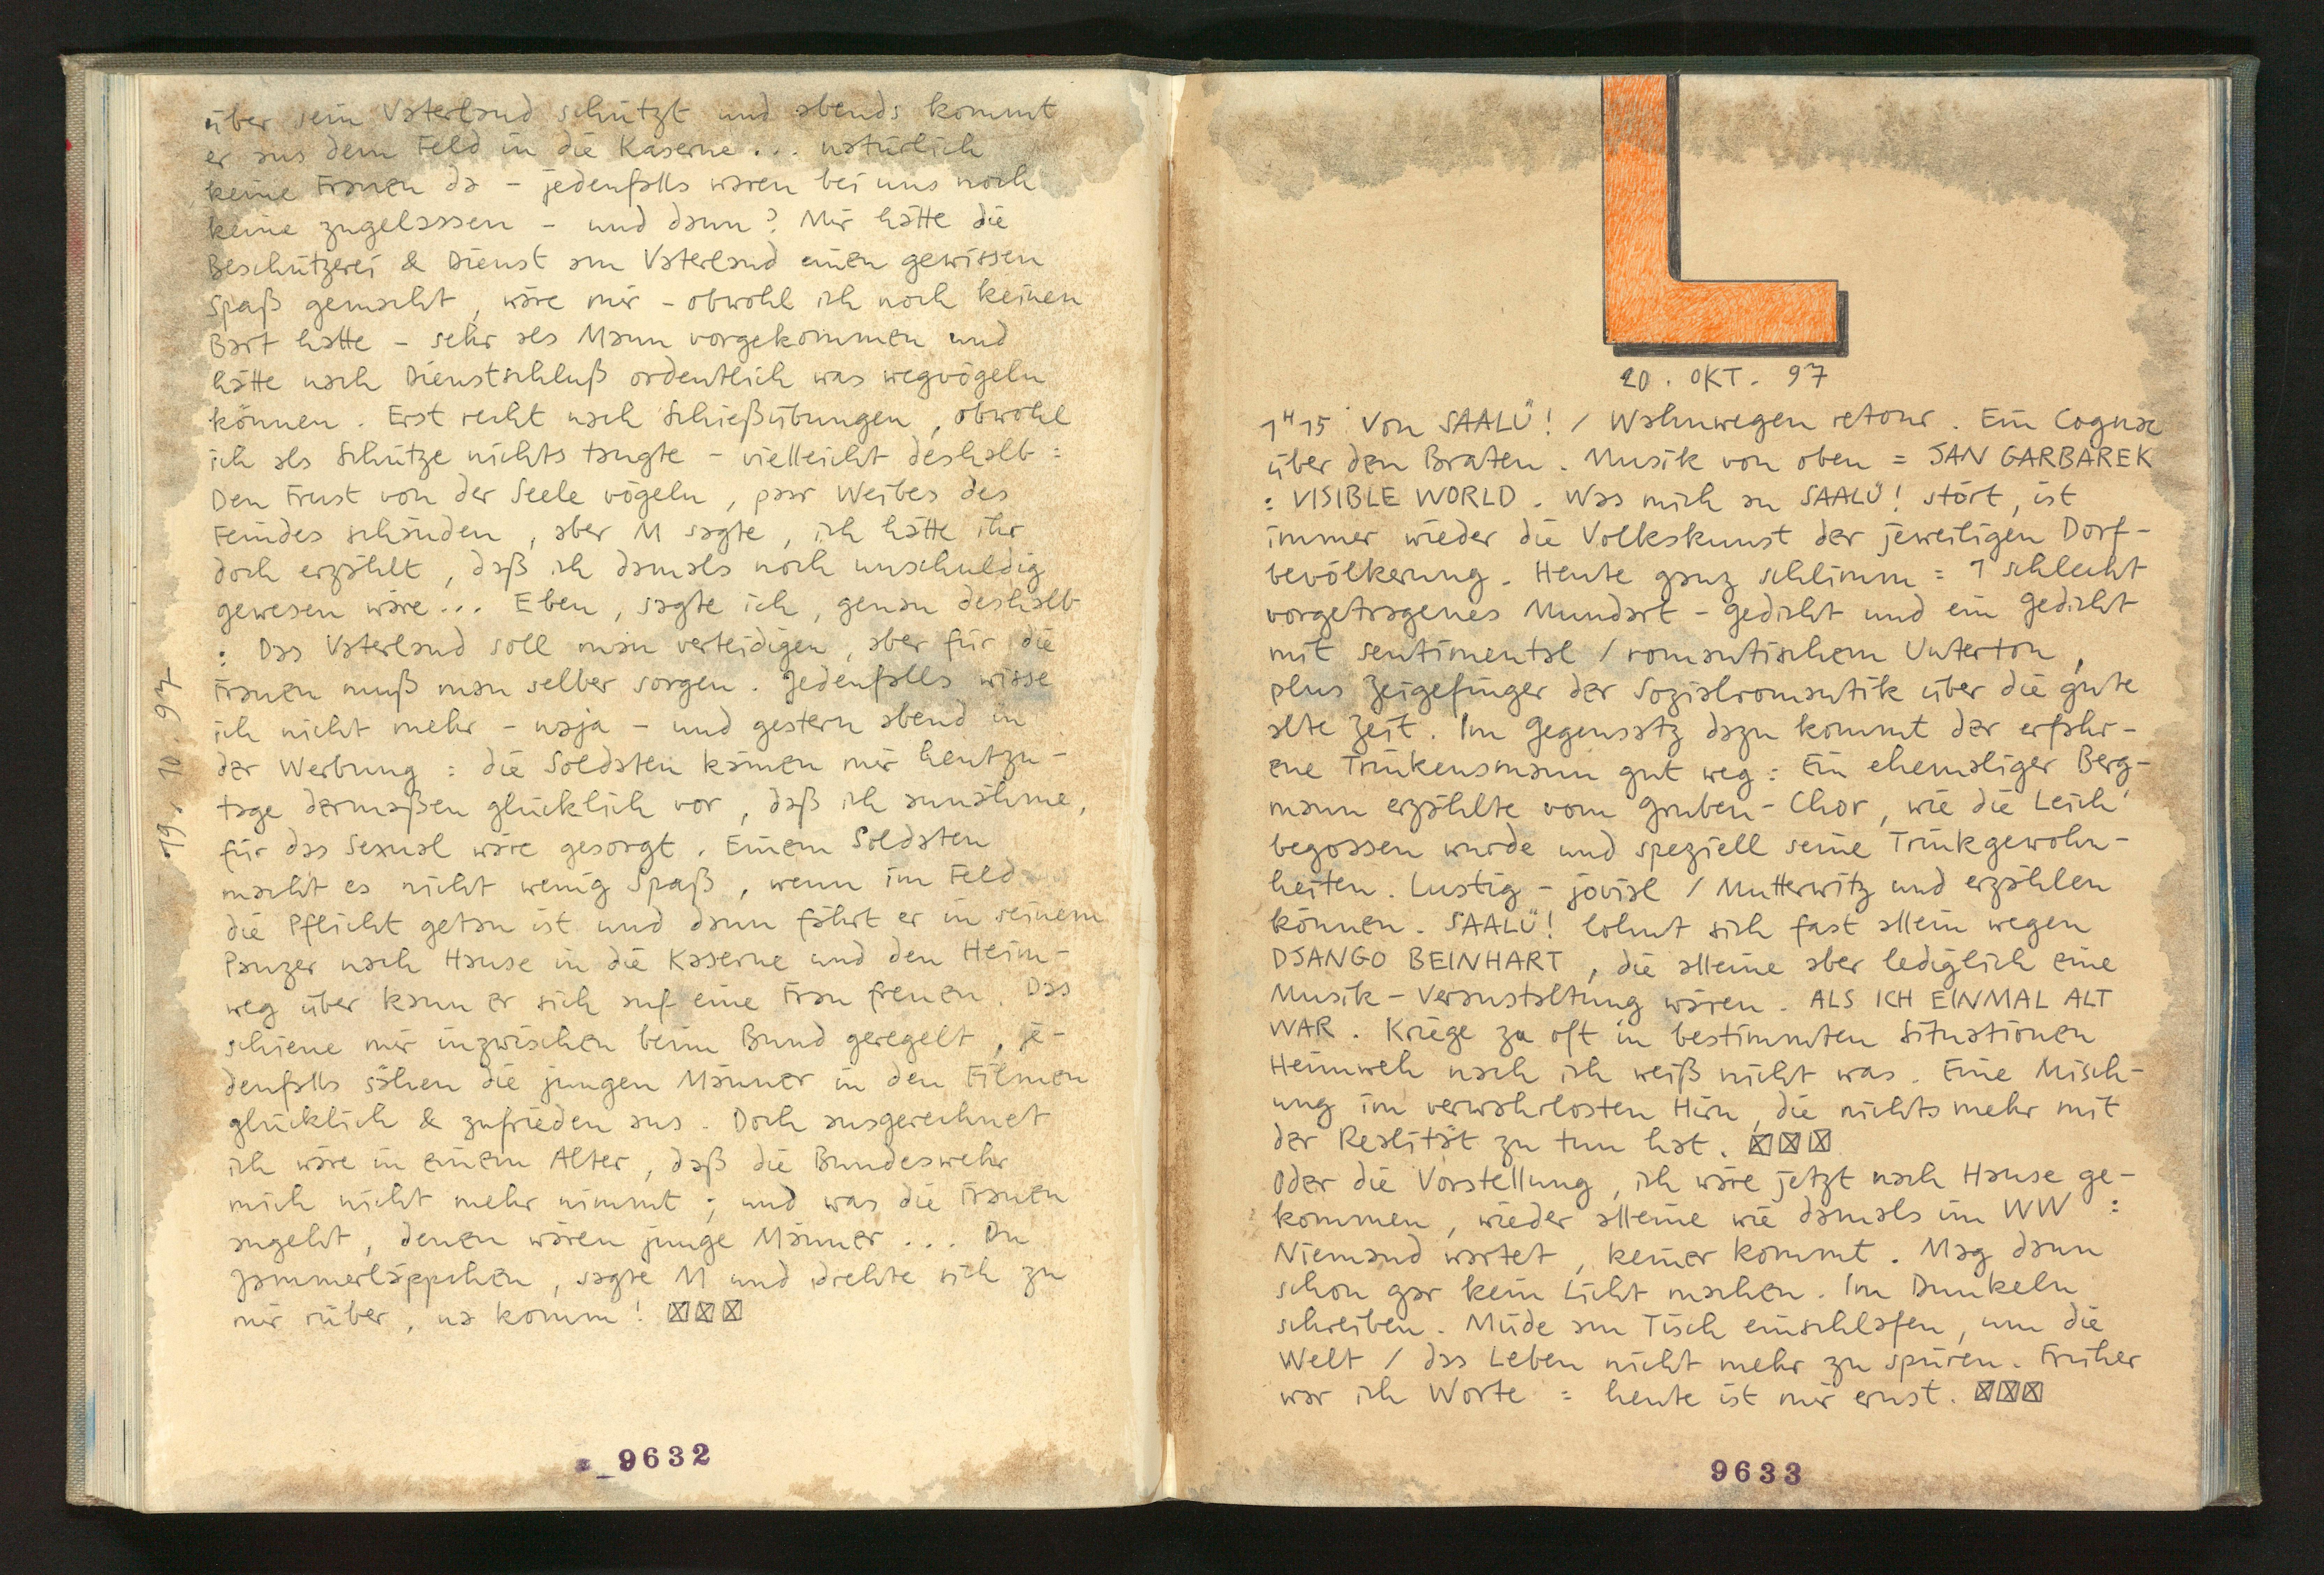 über sein Vaterland schützt und abends kommt
er aus dem Feld in die Kaserne... natürlich
keine Frauen da - jedenfalls waren bei uns noch
keine zugelassen - und dann? Mir hätte die
Beschützerei & Dienst am Vaterland einen gewissen
Spaß gemacht, wäre mir - obwohl ich noch keinen
Bart hatte - sehr als Mann vorgekommen und
hätte nach Dienstschluß ordentlich was wegvögeln
können. Erst recht nach Schießübungen, obwohl
ich als Schütze nichts taugte - vielleicht deshalb:
Den Frust von der Seele vögeln, paar Weibes des
Feindes schänden, aber M sagte, ich hätte ihr
doch erzählt, daß ich damals noch unschuldig
gewesen wäre... Eben, sagte ich, genau deshalb
: Das Vaterland soll man verteidigen, aber für die
Frauen muß man selber sorgen. Jedenfalls wisse
ich nicht mehr - naja - und gestern abend in
der Werbung: die Soldaten kämen mir heutzu-
tage dermaßen glücklich vor, daß ich annähme,
für das Sexual wäre gesorgt. Einem Soldaten
macht es nicht wenig Spaß, wenn im Feld
die Pflicht getan ist und dann fährt er in seinem
Panzer nach Hause in die Kaserne und den Heim-
weg über kann er sich auf eine Frau freuen. Das
schiene mir inzwischen beim Bund geregelt, je-
denfalls sähen die jungen Männer in den Filmen
glücklich & zufrieden aus. Doch ausgerechnet
ich wäre in einem Alter, daß die Bundeswehr
mich nicht mehr nimmt; und was die Frauen
angeht, denen wären junge Männer... Du
Jammerläppchen, sagte M und drehte sich zu
mir rüber, na komm! ☒☒☒
19. 10. 97
9632
20. OKT. 97
1H15 Von SAALÜ! / Wahnwegen retour. Ein Cognac
über den Braten. Musik von oben = JAN GARBAREK
: VISIBLE WORLD. Was mich an SAALÜ! stört, ist
immer wieder die Volkskunst der jeweiligen Dorf-
bevölkerung. Heute ganz schlimm = 1 schlecht
vorgetragenes Mundart-Gedicht und ein Gedicht
mit sentimental / romantischem Unterton,
plus Zeigefinger der Sozialromantik über die gute
alte Zeit. Im Gegensatz dazu kommt der erfahr-
ene Trinkensmann gut weg: Ein ehemaliger Berg-
mann erzählte vom Gruben-Chor, wie die Leich'
begossen wurde und speziell seine Trinkgewohn-
heiten. Lustig-jovial / Mutterwitz und erzählen
können. SAALÜ! lohnt sich fast allein wegen
DJANGO BEINHART, die alleine aber lediglich eine
Musik-Veranstaltung wären. ALS ICH EINMAL ALT
WAR. Kriege zu oft in bestimmten Situationen
Heimweh nach ich weiß nicht was. Eine Misch-
ung im verwahrlosten Hirn, die nichts mehr mit
der Realität zu tun hat. ☒☒☒
Oder die Vorstellung, ich wäre jetzt nach Hause ge-
kommen, wieder alleine wie damals im WW:
Niemand wartet, keiner kommt. Mag dann
schon gar kein Licht machen. Im Dunkeln
schreiben. Müde am Tisch einschlafen, um die
Welt / das Leben nicht mehr zu spüren. Früher
war ich Worte = heute ist mir ernst. ☒☒☒
9633